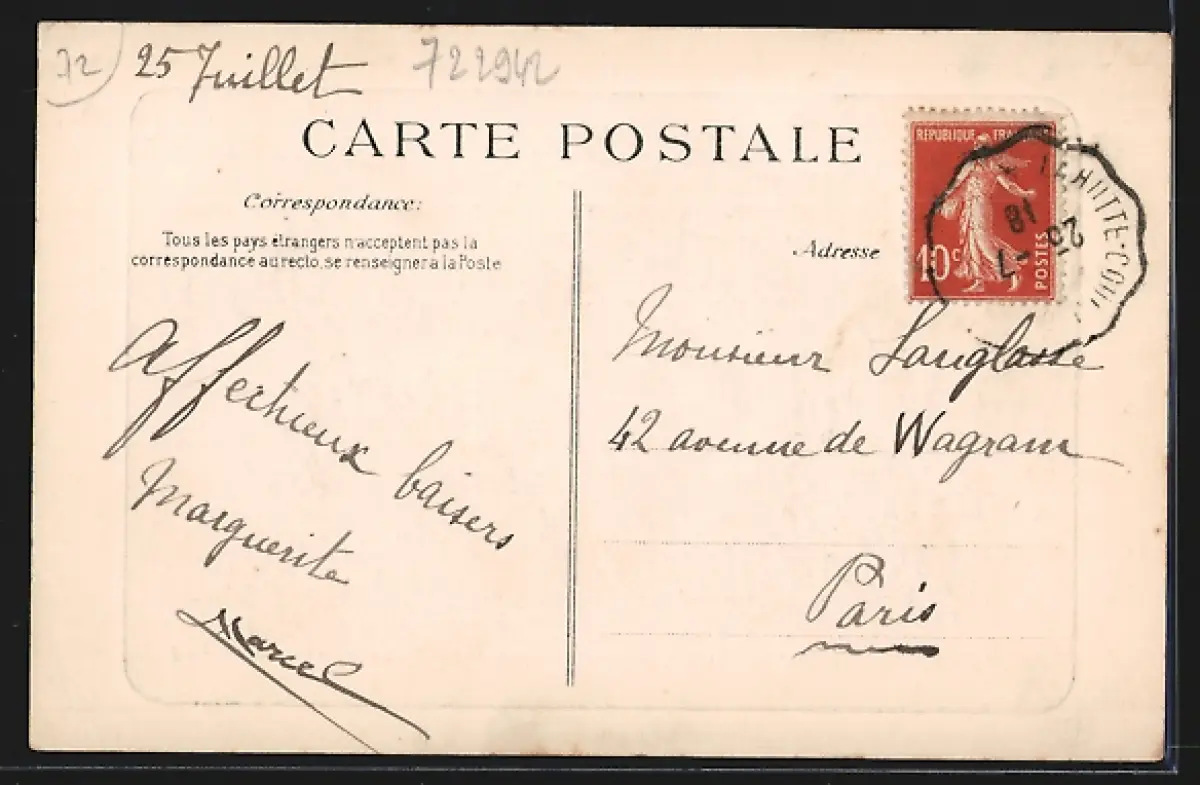 72
25 Juillet
722942
CARTE POSTALE
Correspondance:
Tous les pays étrangers n'acceptent pas la
correspondance au recto, se renseigner à la Poste
Adresse
REPUBLIQUE
10c
POSTES
LA HUTTE-COU
18
25 -7
Affectueux baisers
Marguerite
Marcel
Monsieur Langlassé
42 avenue de Wagram
Paris